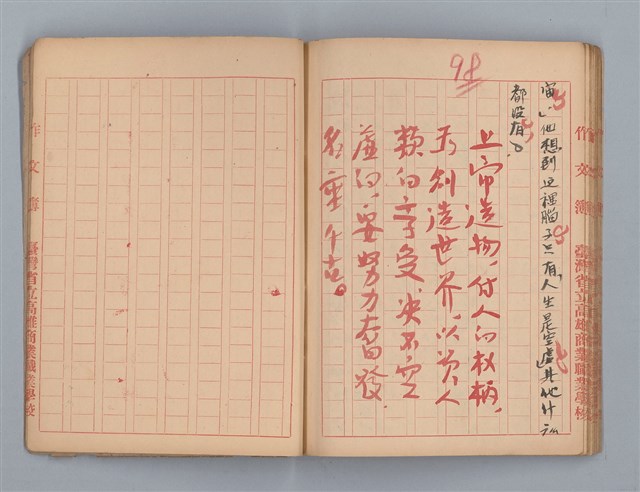 作文簿　臺灣省立高雄商業職業學校
宙，」他想到這裡腦子只有人生是空虛其他什么
都沒有。
98
上帝造物，付人的权柄，
創造世界，以為人
類的享受，决不空
虛的，要努力奮發
名垂千古。
作文簿　臺灣省立高雄商業職業學校